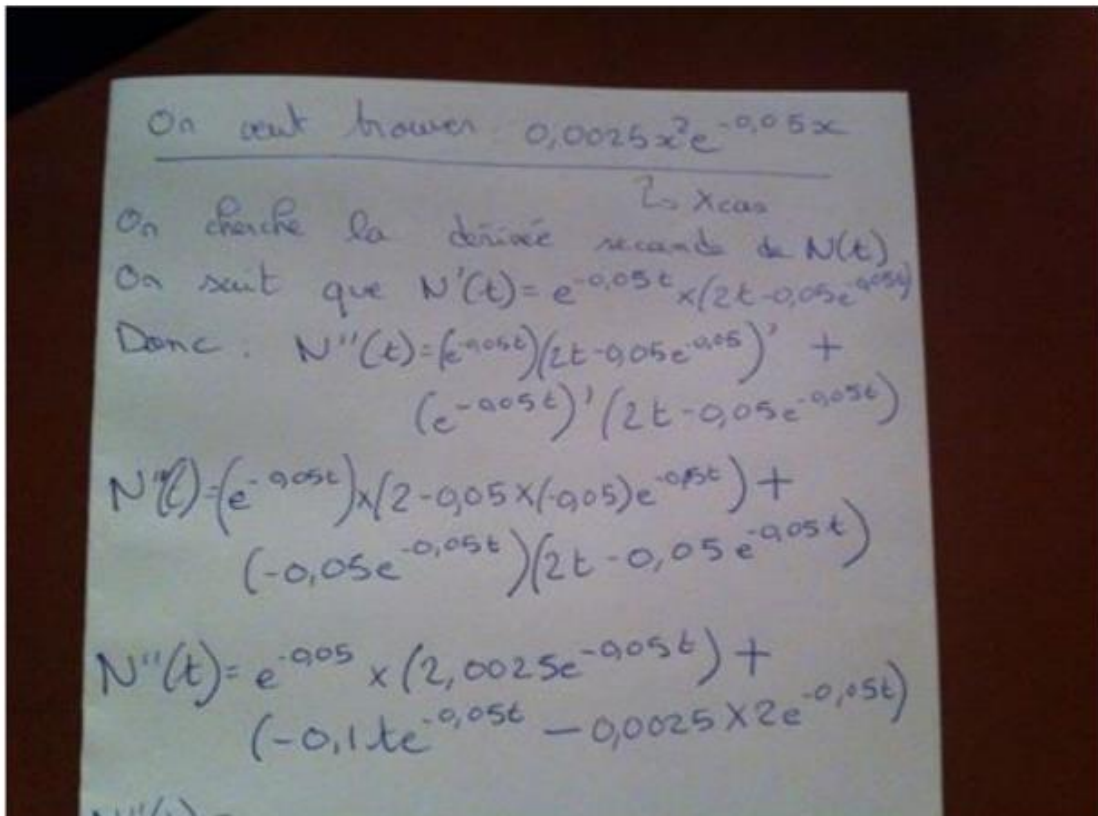 On veut trouver 0,0025x²e^-0,05x
↳ Xcas
On cherche la dérivée seconde de N(t)
On sait que N'(t)= e^-0,05t ×(2t-0,05e^-0,05t)
Donc : N''(t)=(e^-0,05t)(2t-0,05e^-0,05)' +
(e^-0,05t)'(2t-0,05e^-0,05t)
N''(t)=(e^-0,05t)×(2-0,05×(-0,05)e^-0,05t)+
(-0,05e^-0,05t)(2t-0,05e^-0,05t)
N''(t)= e^-0,05 ×(2,0025e^-0,05t)+
(-0,1te^-0,05t -0,0025×2e^-0,05t)